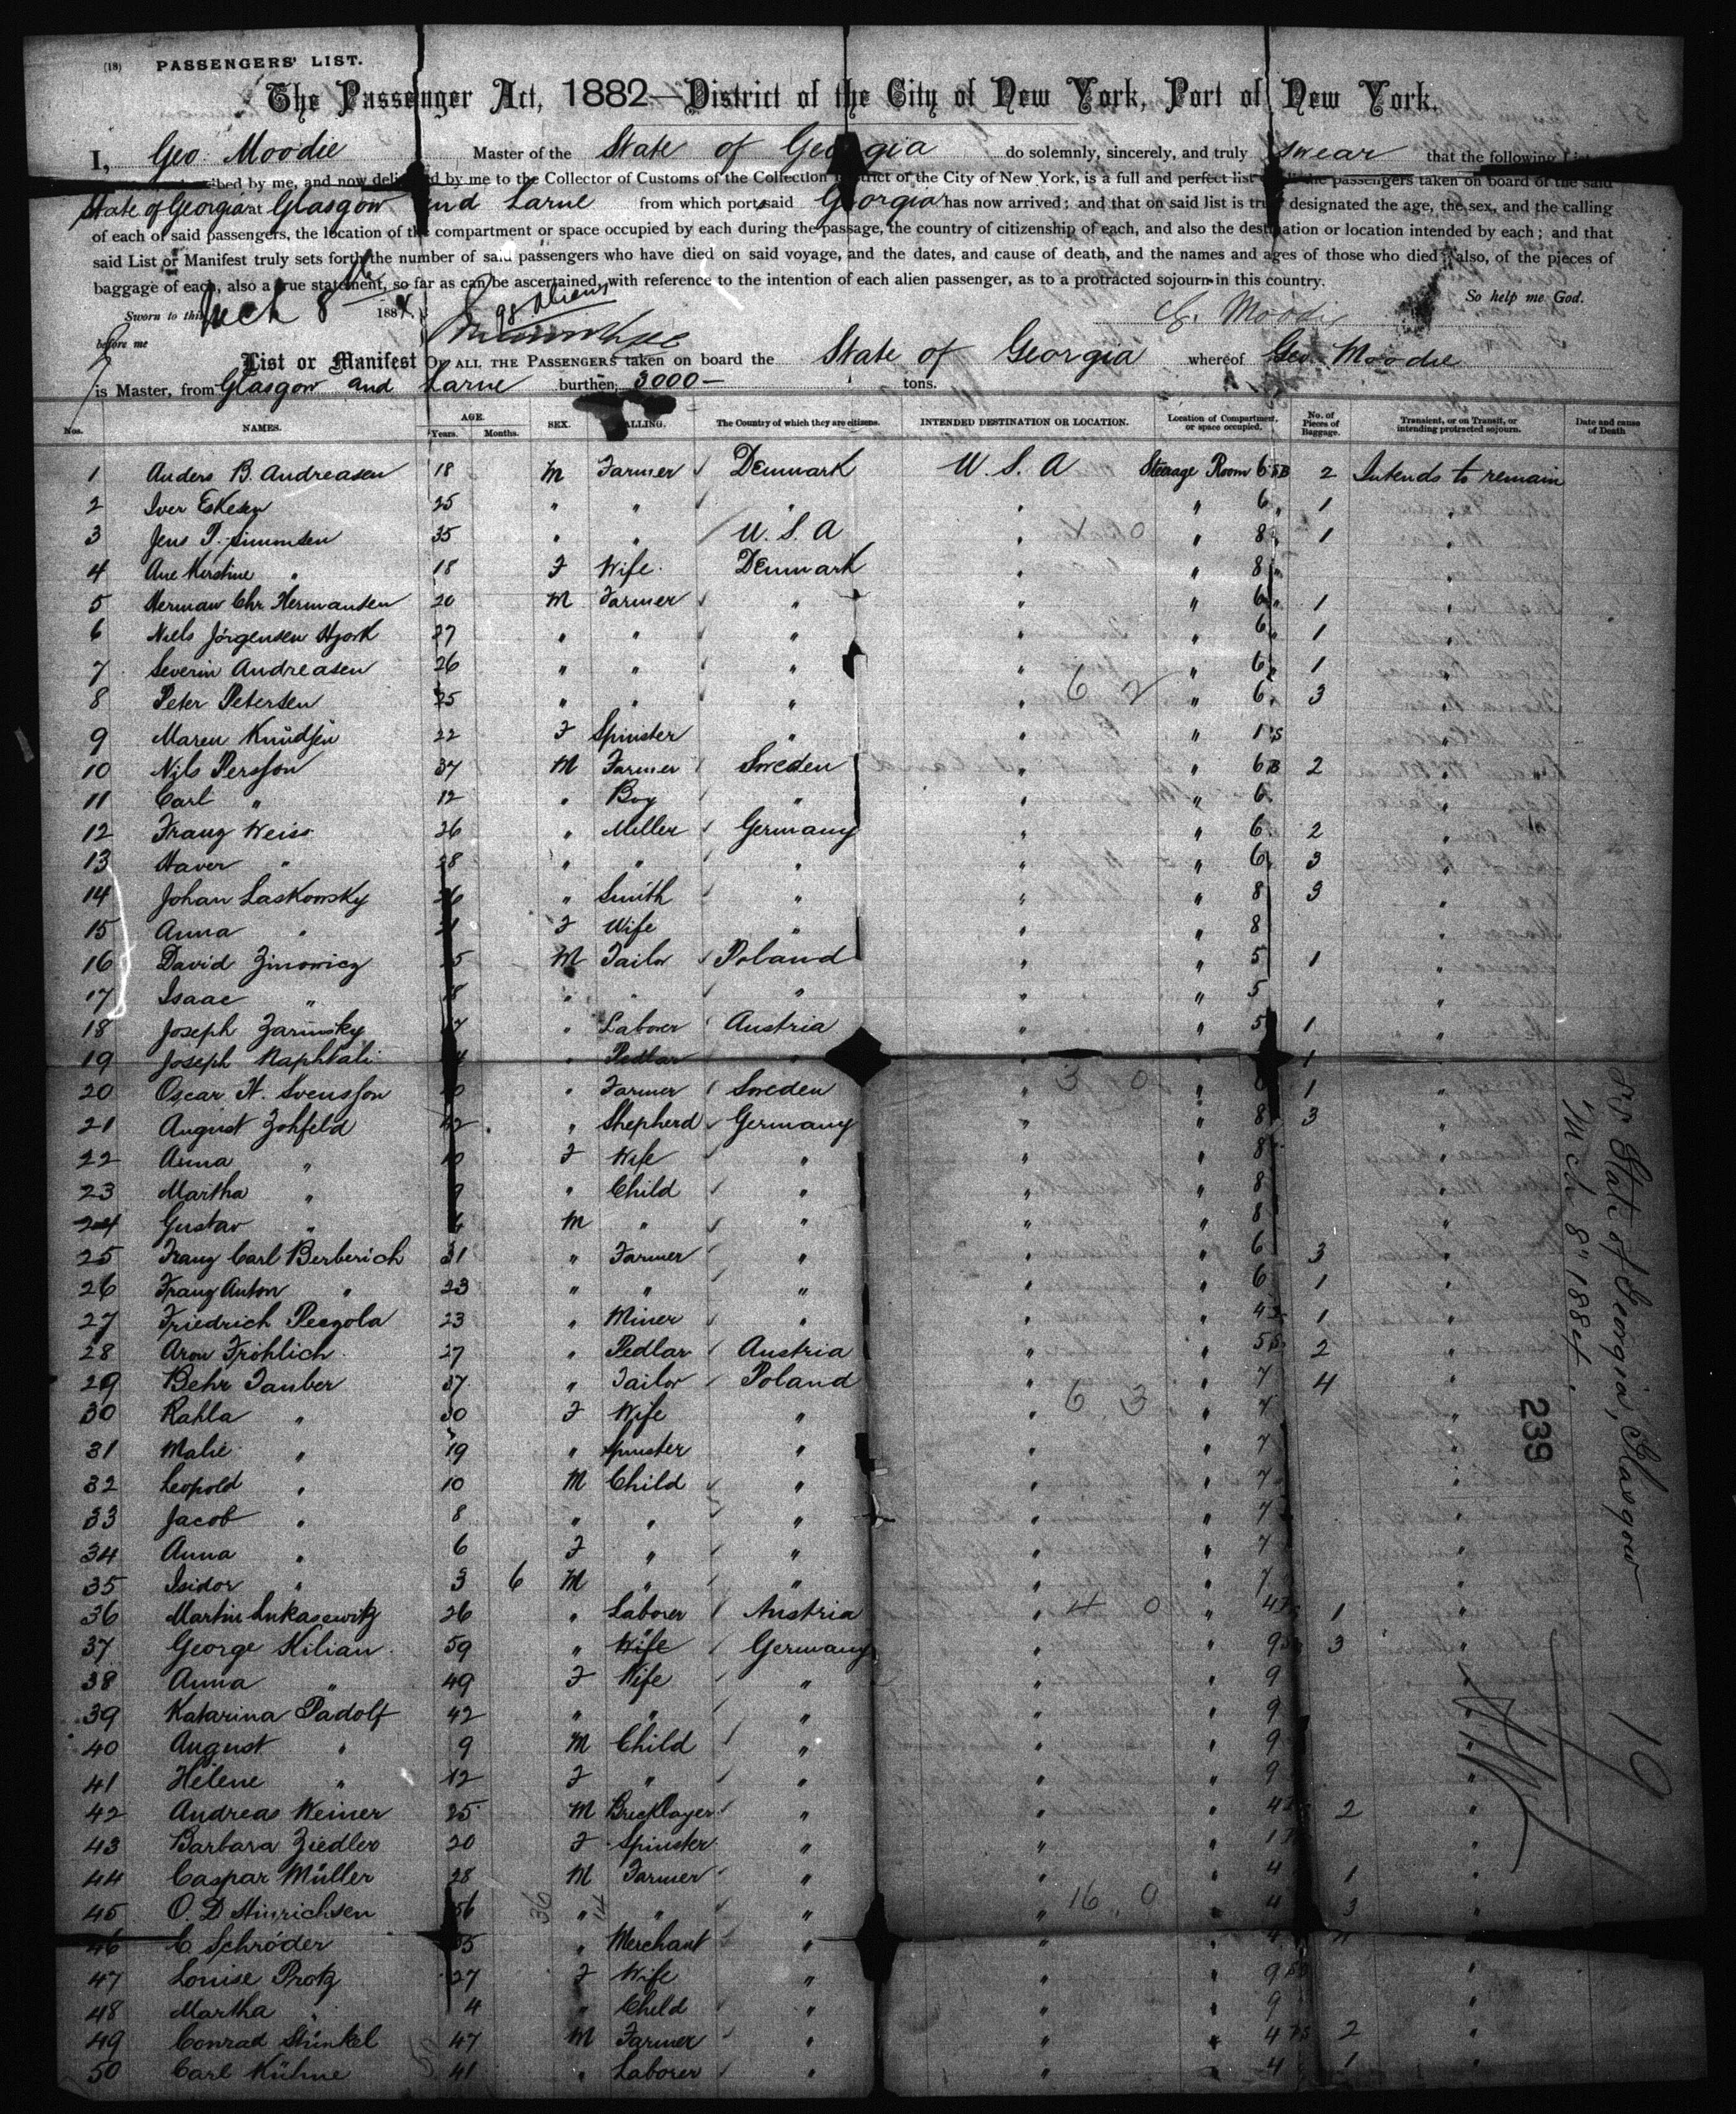 (18) PASSENGERS' LIST.
The Passenger Act, 1882—District of the City of New York, Port of New York.
I, Geo Moodie Master of the State of Georgia do solemnly, sincerely, and truly swear that the following List
by me, and now delivered by me to the Collector of Customs of the Collection District of the City of New York, is a full and perfect list of all the passengers taken on board of the said
State of Georgia at Glasgow and Larne from which port said Georgia has now arrived; and that on said list is truly designated the age, the sex, and the calling
of each of said passengers, the location of the compartment or space occupied by each during the passage, the country of citizenship of each, and also the destination or location intended by each; and that
said List or Manifest truly sets forth the number of said passengers who have died on said voyage, and the dates, and cause of death, and the names and ages of those who died; also, of the pieces of
baggage of each, also a true statement, so far as can be ascertained, with reference to the intention of each alien passenger, as to a protracted sojourn in this country.
So help me God.
Sworn to this Mch 8th 1884
98 Aliens
G. Moodie
before me
List or Manifest OF ALL THE PASSENGERS taken on board the State of Georgia whereof Geo Moodie
is Master, from Glasgow and Larne burthen, 3000 — tons.
Nos. NAMES. AGE. Years. Months. SEX. CALLING. The Country of which they are citizens. INTENDED DESTINATION OR LOCATION. Location of Compartment, or space occupied. No. of Pieces of Baggage. Transient, or on Transit, or intending protracted sojourn. Date and cause of Death
1 Anders B. Andreasen 18 M Farmer Denmark U. S. A Steerage Room 6 2 Intends to remain
2 Iver Eskesen 25 " " " " " 6 1 "
3 Jens P. Simonsen 35 " " U. S. A " " 8 1 "
4 Ane Kerstine " 18 F Wife Denmark " " 8 "
5 Herman Chr. Hermansen 20 M Farmer " " " 6 1 "
6 Niels Jörgensen Hjork 27 " " " " " 6 1 "
7 Severin Andreasen 26 " " " " " 6 1 "
8 Peter Petersen 25 " " " " 6 2 " 6 3 "
9 Maren Knudsen 22 F Spinster " " " 1 "
10 Nils Persson 37 M Farmer Sweden " " 6 2 "
11 Carl " 12 " Boy " " " 6 "
12 Franz Weiss 26 " Miller Germany " " 6 2 "
13 Haver " 28 " " " " " 6 3 "
14 Johan Laskowsky 26 " Smith " " " 8 3 "
15 Anna " 21 F Wife " " " 8 "
16 David Zinowicz M Tailor Poland " " 5 1 "
17 Isaac " " " " " " 5 "
18 Joseph Zarinsky " Laborer Austria " " 5 1 "
19 Joseph Naphtali " Pedlar " " " 1 "
20 Oscar H. Svensson " Farmer Sweden " 3 0 " 1 "
21 August Zohfeld 42 " Shepherd Germany " " 8 3 "
22 Anna " F Wife " " " 8 "
23 Martha " 9 " Child " " " 8 "
24 Gustav " M " " " " 8 "
25 Franz Carl Berberich 31 " Farmer " " " 6 3 "
26 Franz Anton " 23 " " " " " 6 1 "
27 Friedrich Peczola 23 " Miner " " " 4 1 "
28 Aron Fröhlich 27 " Pedlar Austria " " 5 2 "
29 Behr Tauber 37 " Tailor Poland " " 7 4 "
30 Rahla " 30 F Wife " " 6 3 " 7 "
31 Malie " 19 " Spinster " " " 7 "
32 Leopold " 10 M Child " " " 7 "
33 Jacob " 8 " " " " " 7 "
34 Anna " 6 F " " " " 7 "
35 Isidor " 3 6 M " " " " 7 "
36 Martin Lukasewitz 26 " Laborer Austria " 4 0 " 4 1 "
37 George Kilian 59 " Wife Germany " " 9 3 "
38 Anna " 49 F Wife " " " 9 "
39 Katarina Padolf 42 " " " " " 9 "
40 August " 9 M Child " " " 9 "
41 Helene " 12 F " " " " 9 "
42 Andreas Weiner 25 M Bricklayer " " " 4 2 "
43 Barbara Ziedler 20 F Spinster " " " 1 "
44 Caspar Müller 28 M Farmer " " " 4 1 "
45 O. D Hinrichsen 56 36 " 14 " " " 16 0 " 4 3 "
46 C Schröder " Merchant " " " 4 "
47 Louise Protz 27 F Wife " " " 9 "
48 Martha " 4 " Child " " " 9 "
49 Conrad Stünkel 47 M Farmer " " " 4 2 "
50 Carl Kühne 41 " Laborer " " " 4 1 "
SS State of Georgia, Glasgow
Mch 8" 1884
239
19